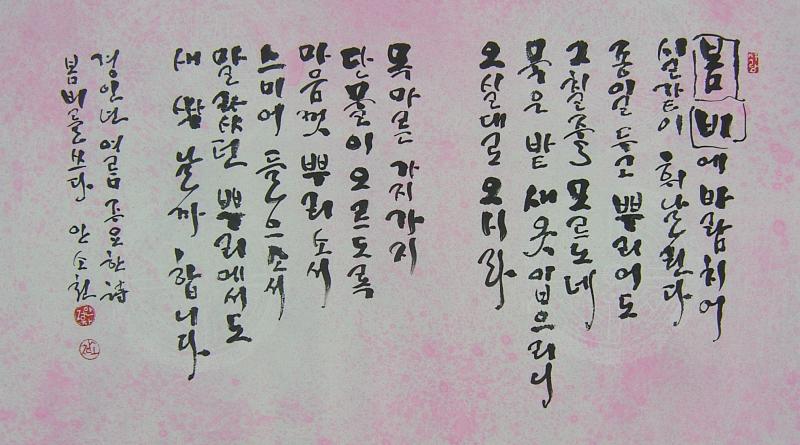 봄비에 바람치어
실같이 휘날린다
종일 듣고 뿌리어도
그칠줄 모르노네
묵은 밭 새 옷 입으리니
오실대로 오시라
목마른 가지가지
단물이 오르도록
마음껏 뿌리소서
스미어 들으소서
말랐던 뿌리에서도
새 싹 날까 합니다
경인년 여름 종요한 詩
봄비를 쓰다 안소천